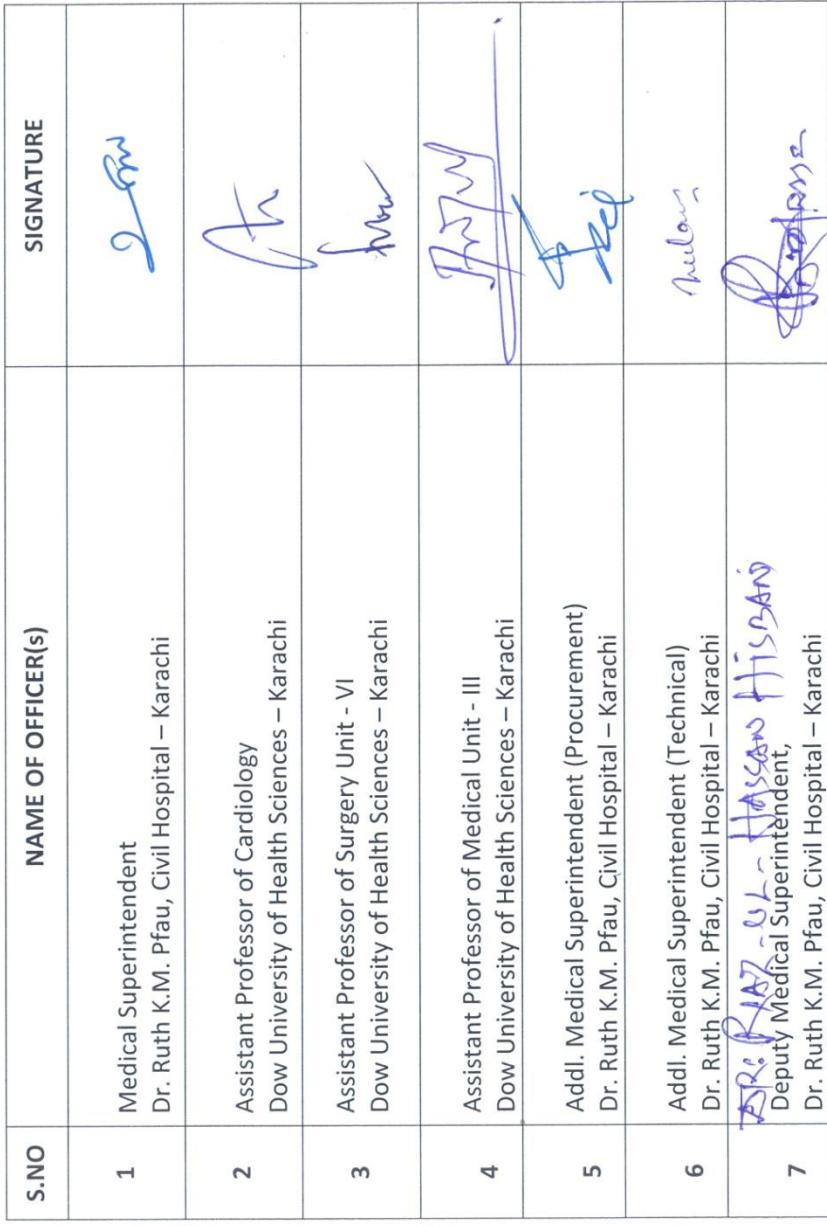 S.NO NAME OF OFFICER(s) SIGNATURE
1 Medical Superintendent
Dr. Ruth K.M. Pfau, Civil Hospital – Karachi
2 Assistant Professor of Cardiology
Dow University of Health Sciences – Karachi
3 Assistant Professor of Surgery Unit - VI
Dow University of Health Sciences – Karachi
4 Assistant Professor of Medical Unit - III
Dow University of Health Sciences – Karachi
5 Addl. Medical Superintendent (Procurement)
Dr. Ruth K.M. Pfau, Civil Hospital – Karachi
6 Addl. Medical Superintendent (Technical)
Dr. Ruth K.M. Pfau, Civil Hospital – Karachi
DR: RIAZ-UL-HASSAN HISBANI
7 Deputy Medical Superintendent,
Dr. Ruth K.M. Pfau, Civil Hospital – Karachi